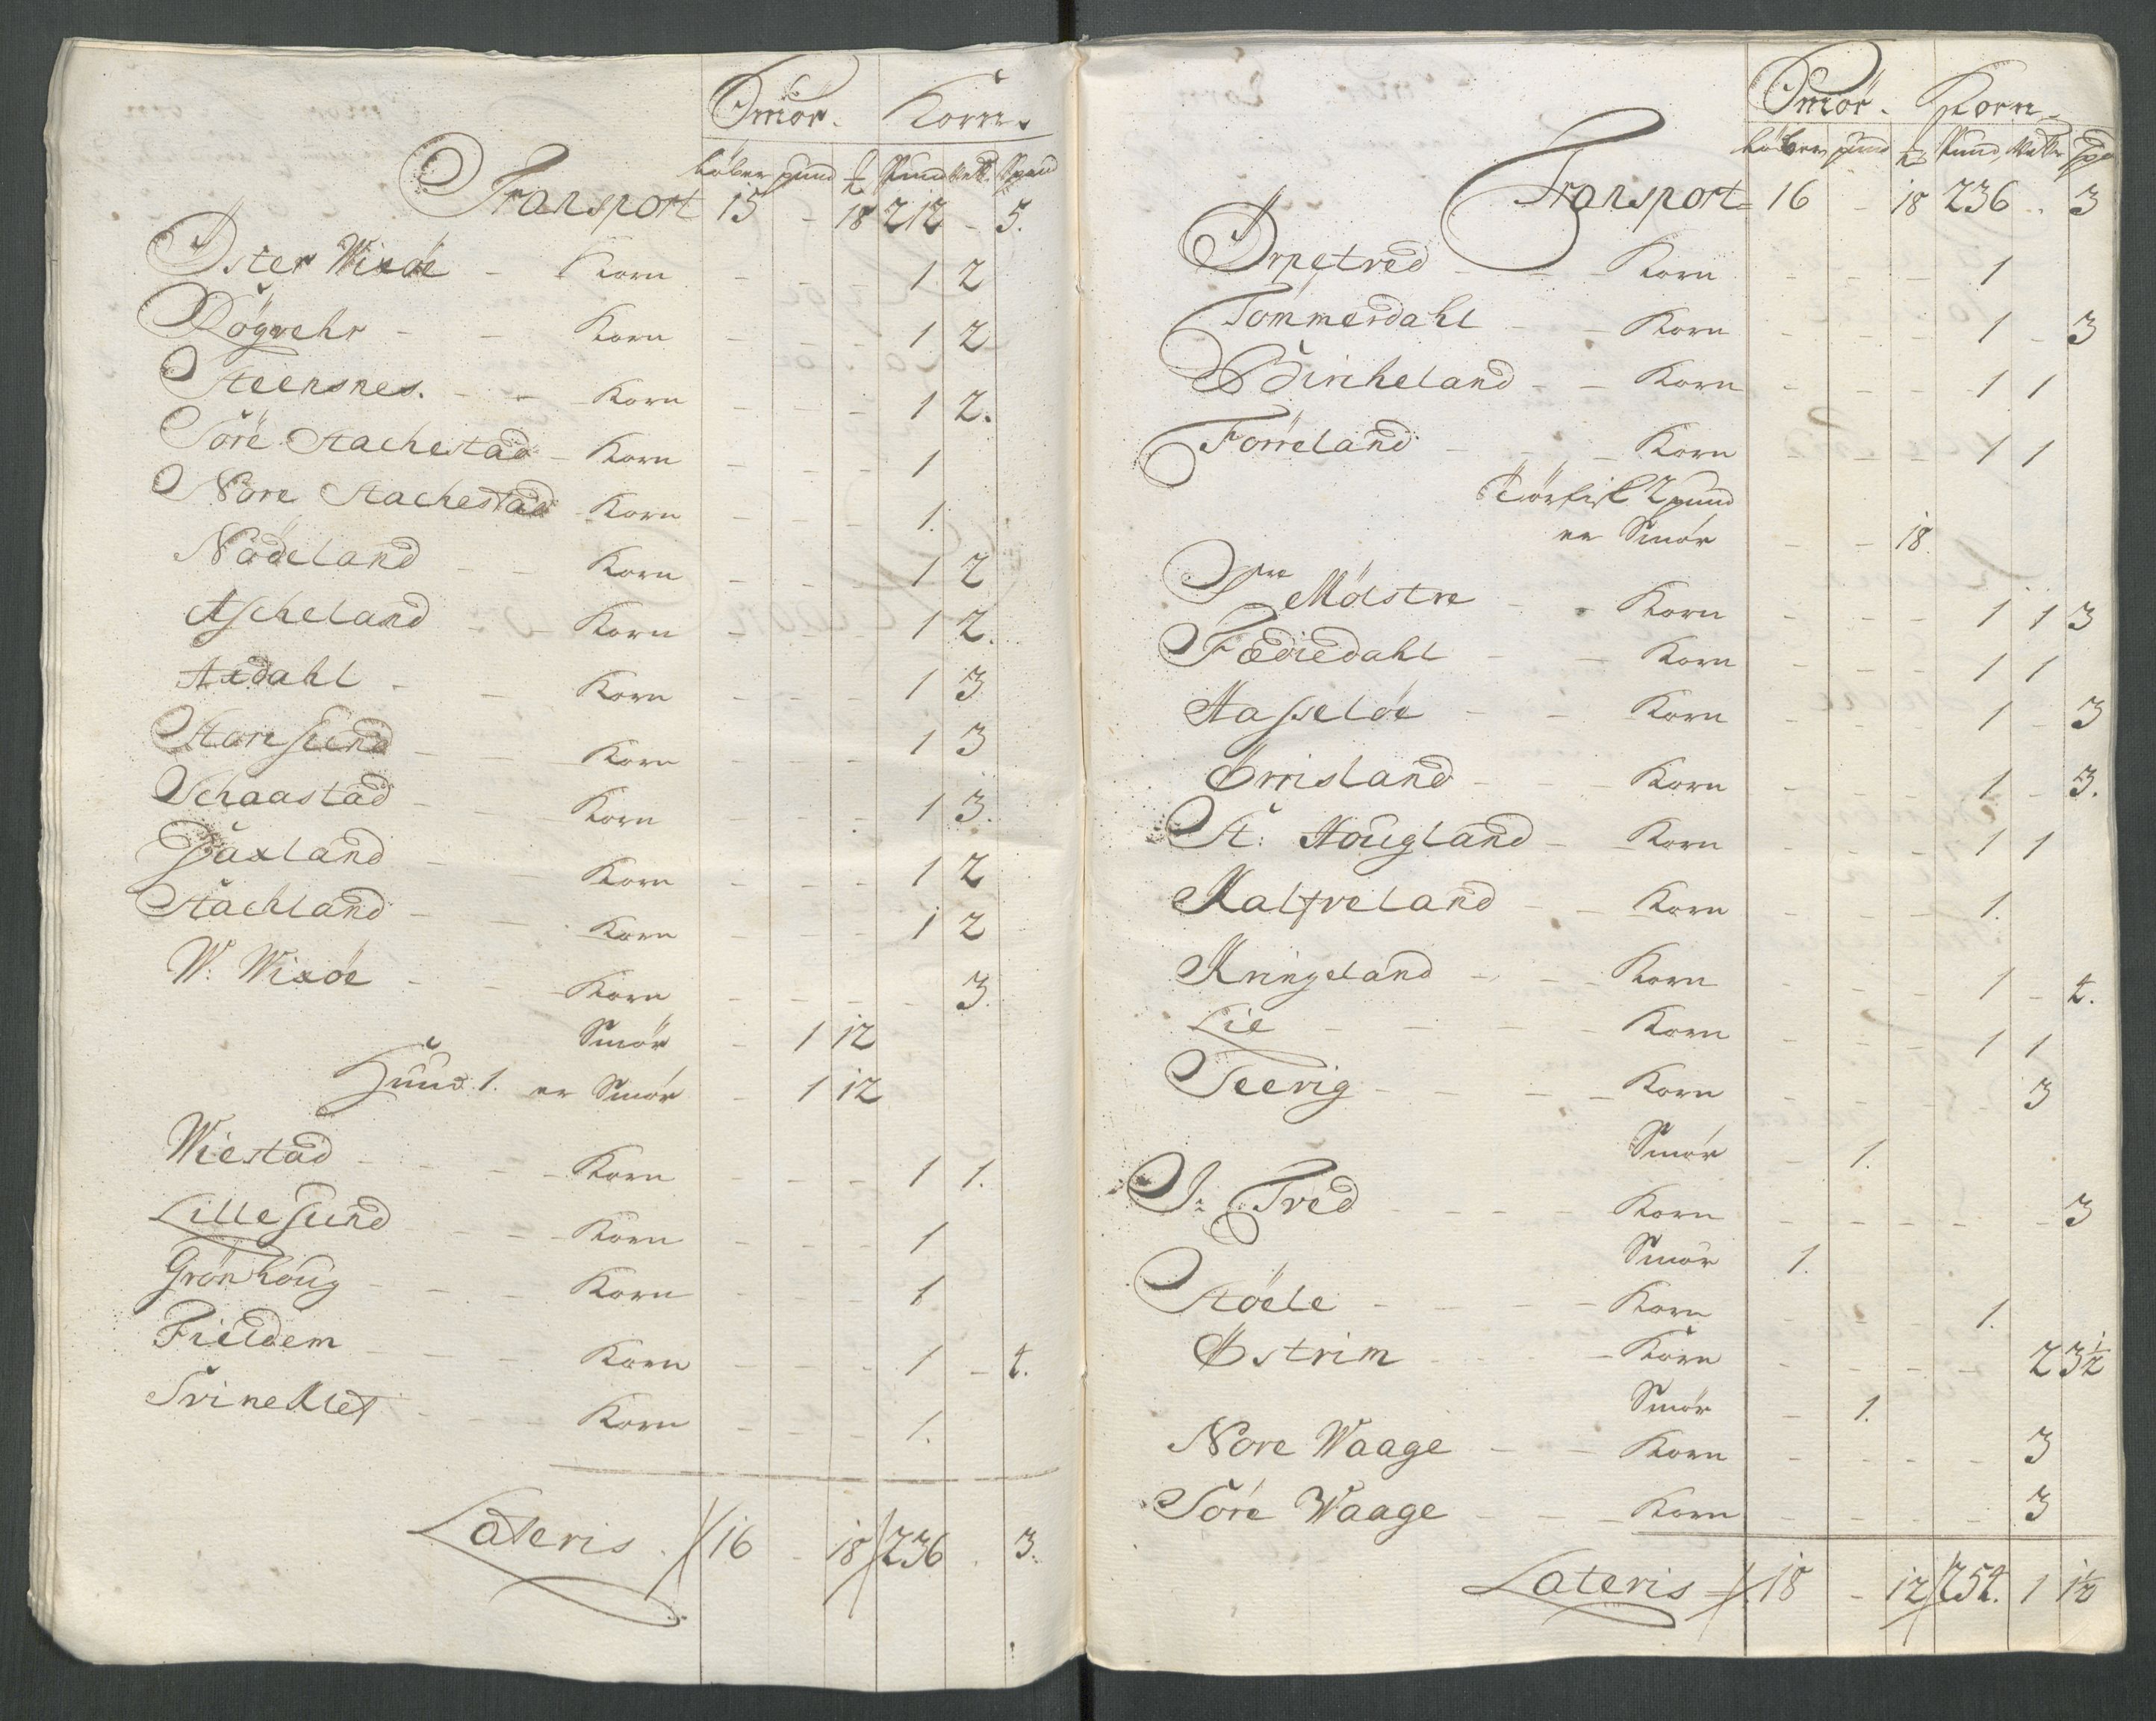 Smör. Korn.
Löber pund ℔ Pund Vett Spand
Transport 15 - 18 212 - 5.
Öster Wixöe - Korn - - - 1 2
Rögvehr - - Korn - - - 1 2
Steensnes. - - Korn - - - 1 2.
Söre Stachestad - Korn - - - 1
Nore Stachestad - Korn - - - 1.
Nödeland - - Korn - - - 1 2
Ascheland - - Korn - - - 1 2.
Axdahl - - Korn - - - 1 3
Storesund - - Korn - - - 1 3
Schaastad - Korn - - - 1 3.
Saxland - - Korn - - - 1 2
Stachland - - Korn - - - 1 2
W: Wixöe - - Korn - - - - 3.
Smör - 1 12
Huud 1. er Smör - 1 12
Wiestad - - - Korn - - - 1 1.
Lillesund - - - Korn - - - 1
Grönhoug - - - Korn - - - 1
Fieldem - - - Korn - - - 1 - 4.
Svineklet - - - Korn - - - 1.
Lateris. 16 - 18 236 . 3.
Smör. Korn.
Löber pund ℔ Pund, Vetter Spd
Transport 16 - 18 236 .. 3
Ørpetved - - Korn - - - 1
Tömmerdahl - - Korn - - - 1 - 3
Bircheland - - Korn - - - 1 1
Förreland - - - Korn - - - 1 1
Törfisk 2 pund
er Smör - - 18.
Mölstre - - Korn - - - 1 1 3
Fædiedahl - - Korn - - - 1 1
Hasselöe - - Korn - - - 1 - 3
Örrisland - - - Korn - - - 1 - 3.
St: Hougland - - Korn - - - 1 1
Kalfveland - - Korn - - - 1.
Kringeland - - - Korn - - - 1 - 4.
Lie - - - - Korn - - - 1 1
Seevig - - - - Korn - - - - 3
Smör - 1.
I: Tved - - - - Korn - - - - - 3
Smör 1.
Stöele - - - - Korn - - - 1.
Østrim - - - - Korn - - - - 2 3½
Smör - 1.
Nore Waage - - Korn - - - - 3
Söre Waage - - - Korn - - - - 3
Lateris 18 - 12 254. 1 1½